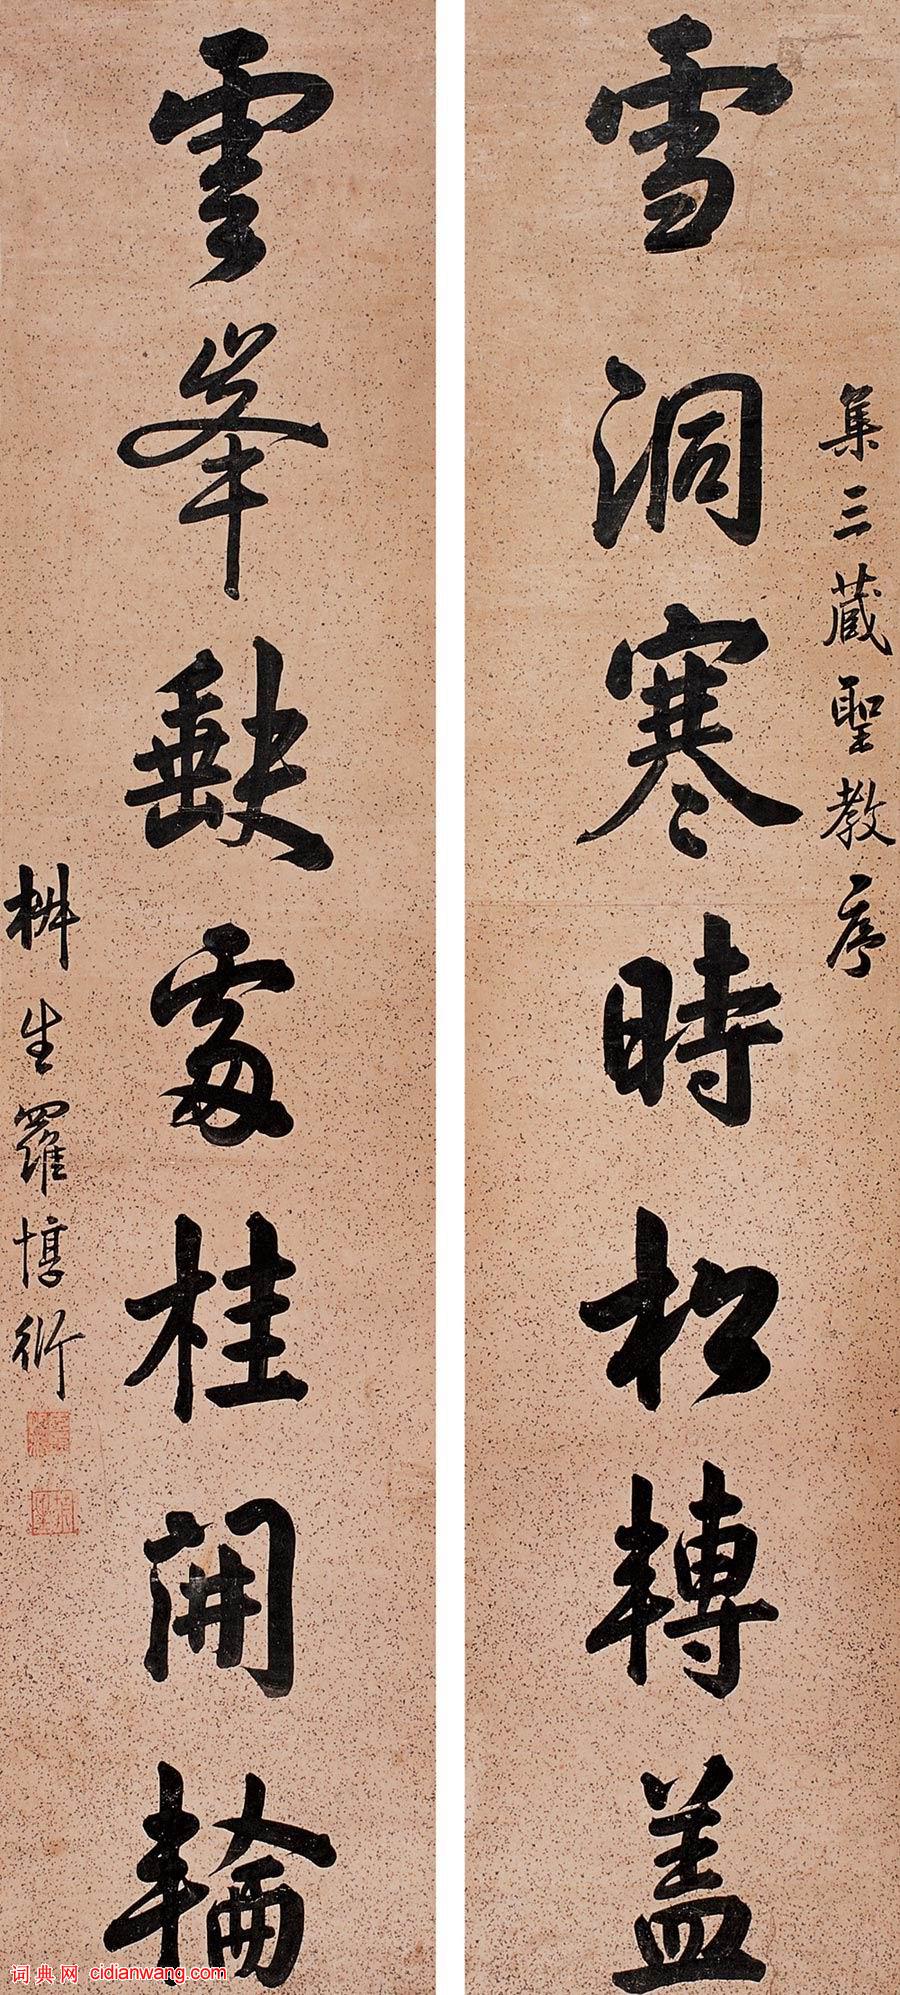 集三藏聖教序
雪洞寒時松轉盖
雲峯缺處桂開輪
椒生羅惇衍
词典网 cidianwang.com